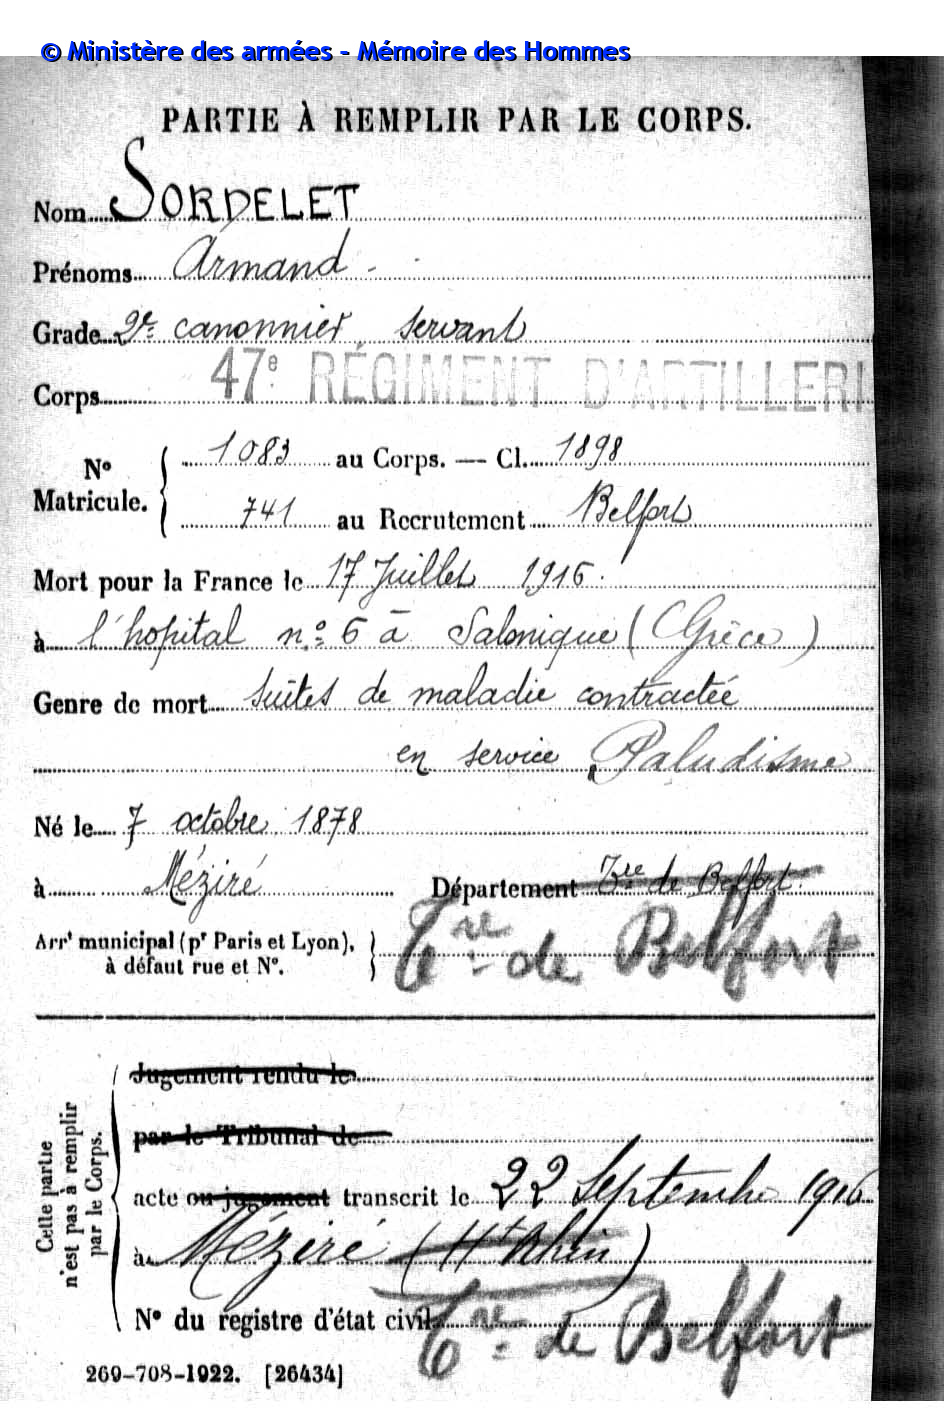 © Ministère des armées - Mémoire des Hommes
PARTIE À REMPLIR PAR LE CORPS.
Nom SORDELET
Prénoms Armand
Grade 2e canonnier servant
Corps 47e RÉGIMENT D'ARTILLERI
No Matricule. 1083 au Corps. — Cl. 1898
741 au Recrutement Belfort
Mort pour la France le 17 Juillet 1916.
à l'hopital n.o 6 à Salonique (Grèce)
Genre de mort suites de maladie contractée
en service Paludisme
Né le 7 octobre 1878
à Méziré Département Tre de Belfort
Arrt municipal (pr Paris et Lyon), à défaut rue et No. Tre de Belfort
Jugement rendu le
par le Tribunal de
acte ou jugement transcrit le 22 Septembre 1916
à Méziré (Ht Rhin)
No du registre d'état civil Tre de Belfort
Cette partie n'est pas à remplir par le Corps.
269-708-1922. [26434]